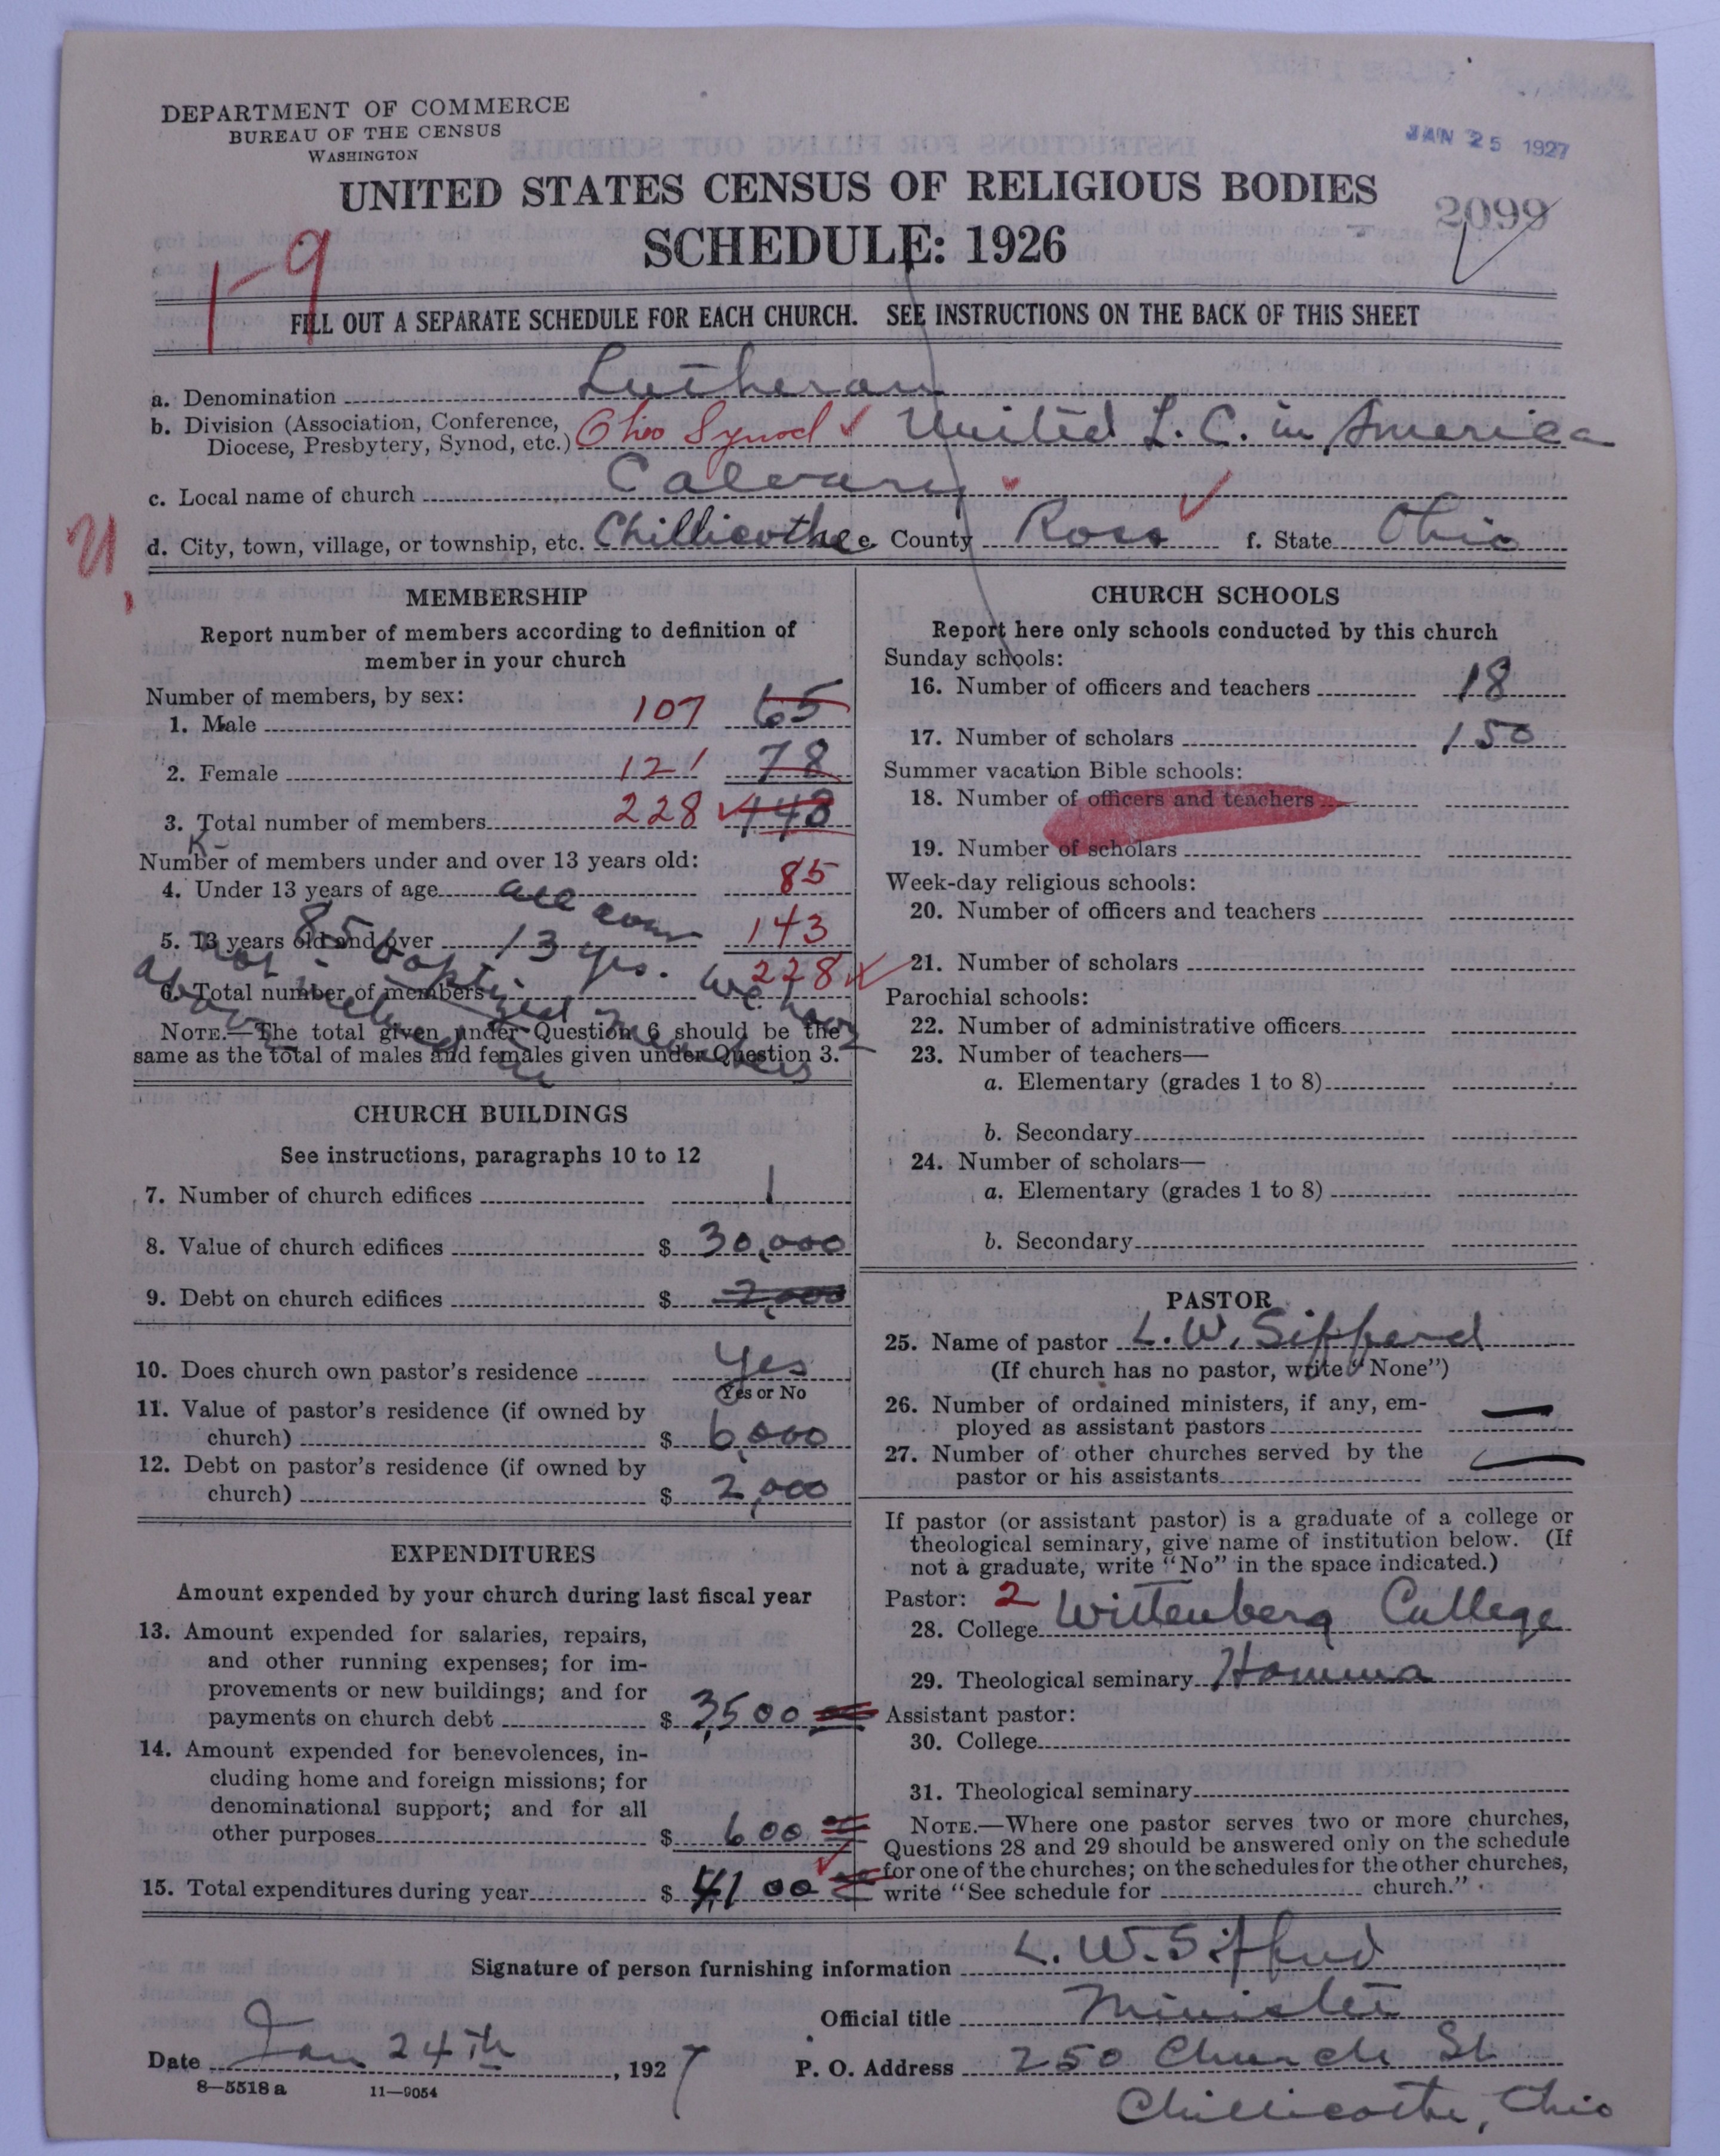 DEPARTMENT OF COMMERCE
BUREAU OF THE CENSUS
WASHINGTON
JAN 25 1927
UNITED STATES CENSUS OF RELIGIOUS BODIES
2099
SCHEDULE: 1926
1-9
FILL OUT A SEPARATE SCHEDULE FOR EACH CHURCH. SEE INSTRUCTIONS ON THE BACK OF THIS SHEET
a. Denomination Lutheran
b. Division (Association, Conference,
Diocese, Presbytery, Synod, etc.) Ohio Synod United L. C. in America
c. Local name of church Calvary
d. City, town, village, or township, etc. Chillicothe e. County Ross f. State Ohio
MEMBERSHIP
Report number of members according to definition of
member in your church
Number of members, by sex:
1. Male 107 65
2. Female 121 78
3. Total number of members 228 143
K-
Number of members under and over 13 years old:
4. Under 13 years of age all over 85
5. 13 years old and over 13 yrs. 143
6. Total number of members 228
85 baptized members
not in
above
we have
NOTE.—The total given under Question 6 should be the
same as the total of males and females given under Question 3.
CHURCH BUILDINGS
See instructions, paragraphs 10 to 12
7. Number of church edifices 1
8. Value of church edifices $ 30,000
9. Debt on church edifices $ 2,000
10. Does church own pastor's residence Yes
Yes or No
11. Value of pastor's residence (if owned by
church) $ 6,000
12. Debt on pastor's residence (if owned by
church) $ 2,000
EXPENDITURES
Amount expended by your church during last fiscal year
13. Amount expended for salaries, repairs,
and other running expenses; for im-
provements or new buildings; and for
payments on church debt $ 3,500
14. Amount expended for benevolences, in-
cluding home and foreign missions; for
denominational support; and for all
other purposes $ 600
15. Total expenditures during year $ 4,100
CHURCH SCHOOLS
Report here only schools conducted by this church
Sunday schools:
16. Number of officers and teachers 18
17. Number of scholars 150
Summer vacation Bible schools:
18. Number of officers and teachers
19. Number of scholars
Week-day religious schools:
20. Number of officers and teachers
21. Number of scholars
Parochial schools:
22. Number of administrative officers
23. Number of teachers—
a. Elementary (grades 1 to 8)
b. Secondary
24. Number of scholars—
a. Elementary (grades 1 to 8)
b. Secondary
PASTOR
25. Name of pastor L. W. Sifferd
(If church has no pastor, write "None")
26. Number of ordained ministers, if any, em-
ployed as assistant pastors —
27. Number of other churches served by the
pastor or his assistants —
If pastor (or assistant pastor) is a graduate of a college or
theological seminary, give name of institution below. (If
not a graduate, write "No" in the space indicated.)
Pastor: 2
28. College Wittenberg College
29. Theological seminary Hamma
Assistant pastor:
30. College
31. Theological seminary
NOTE.—Where one pastor serves two or more churches,
Questions 28 and 29 should be answered only on the schedule
for one of the churches; on the schedules for the other churches,
write "See schedule for church."
Signature of person furnishing information L. W. Sifferd
Official title Minister
Date Jan 24th, 1927 P. O. Address 250 Church St
Chillicothe, Ohio
8—5518 a 11—9054